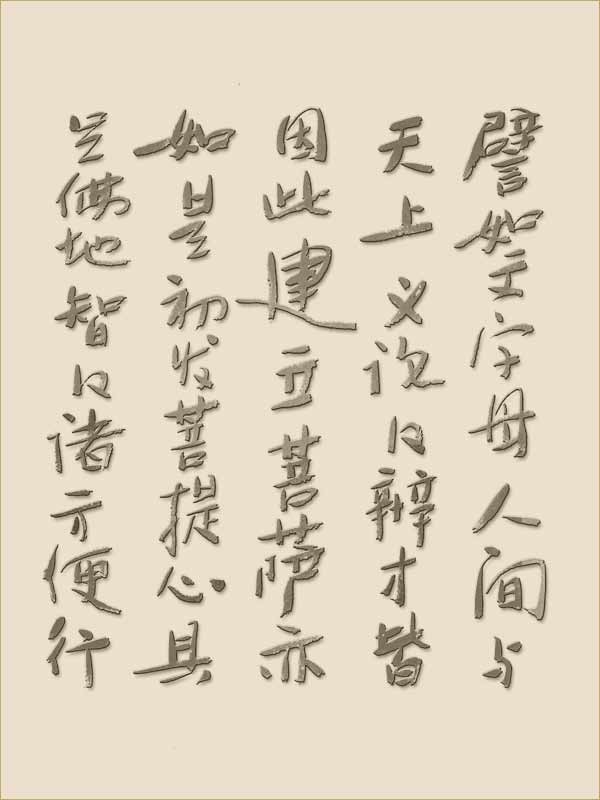 譬如文字母人间与
天上义说以辩才皆
因此建立菩萨亦
如是初发菩提心具
足佛地智以诸方便行